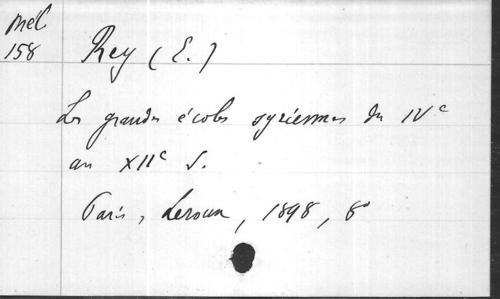 Mél
158
Rey (E.)
Les grandes écoles syriennes du IVe
au XIIe S.
Paris, Leroux, 1898, 8°